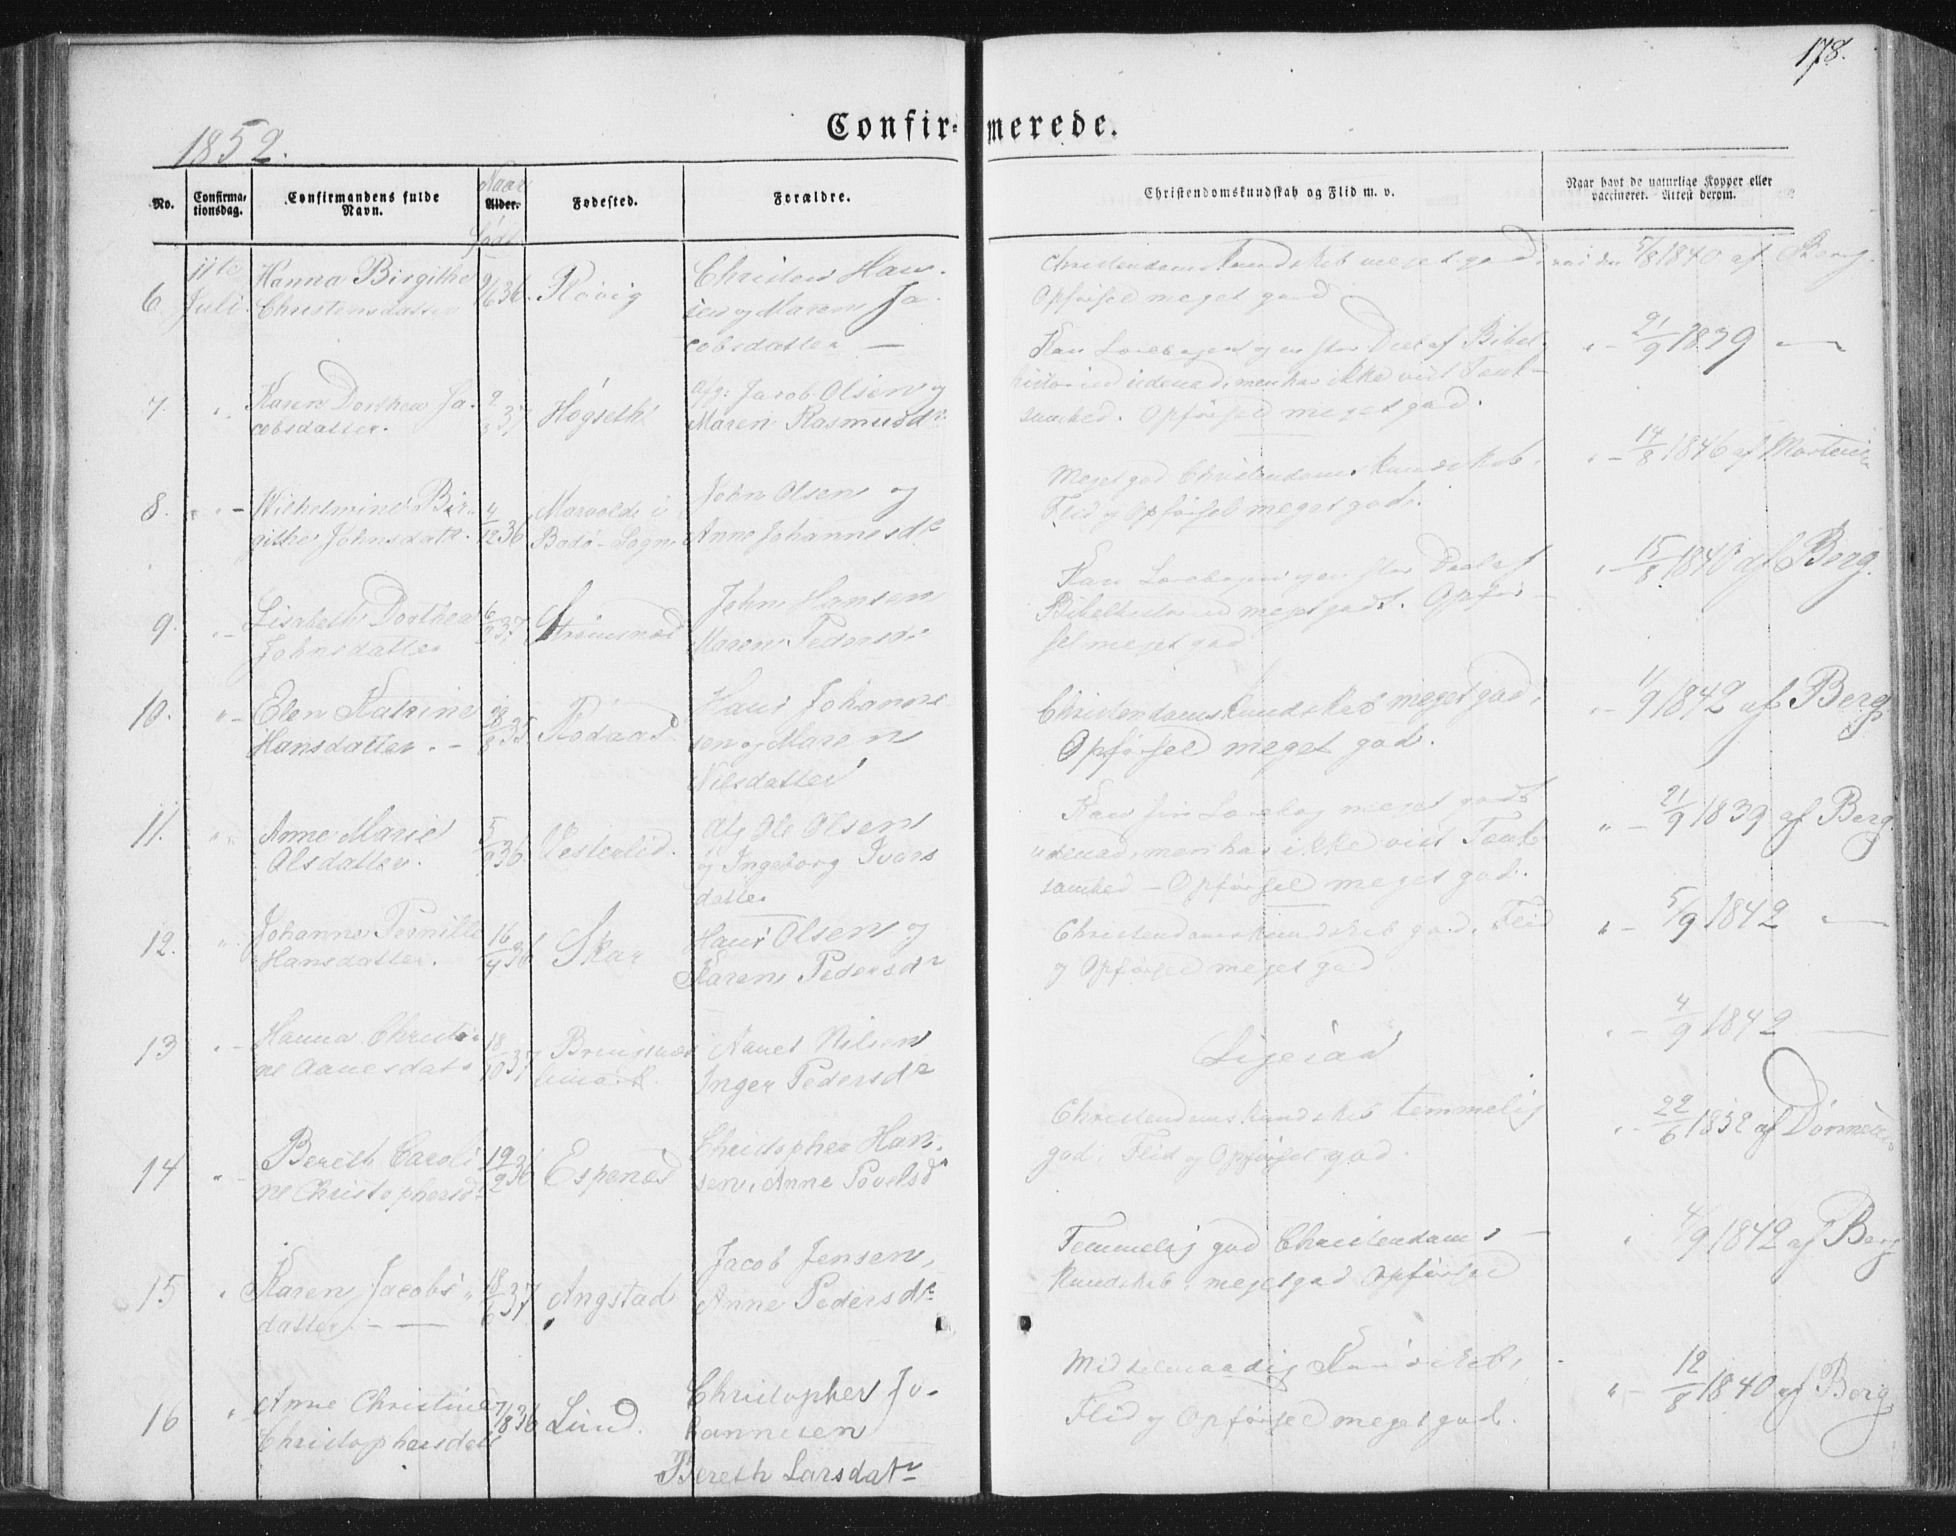 178.
Confir- merede.
1852.
No.
Confirma-
tionsdag.
Confirmandens fulde
Navn.
Naar
Alder.
født
Fødested.
Forældre.
Christendomskundskab og Flid m. v.
Naar havt de naturlige Kopper eller
vaccineret. Attest derom.
6 11te Juli Hanna Birgithe 36 Røvig Christen Han-
Christensdatter sen og Maren Ja-
cobsdatter —
Christendomskundskab meget god 5/8 1840 af Berg.
Opførsel meget god
7. Karen Dorthea Ja- 37 Høgseth Jacob Olsen og
cobsdatter. Maren Rasmusdr
Kan Lærebogen og en stor Deel af Bibel- " - 21/9 1839 —
historien udenad, men har ikke viist Tænk-
somhed. Opførsel meget god.
8. " - Wilhelmine Bir- 4/12 36 i John Olsen og
githe Johnsdatr. Bodø-Sogn Anne Johannesdr
Meget god Christendomskundskab. " - 14/8 1846 af
Flid og Opførsel meget god.
9. " - Lisabeth Dorthea 37 Strømsnæs John Hansen
Johnsdatter Maren Pedersdr
Kan Lærebogen og en stor Deel af " - 15/8 1840 af Berg.
Bibelhistorien meget godt. Opfør-
sel meget god
10. " - Elen Katrine 35 Rødaas Hans Johanne-
Hansdatter. - sen og Maren
Nilsdatter
Christendomskundskab meget god, " - 1/9 1842 af Berg
Opførsel meget god.
11. " Anne Marie 36 Vesterlid. Ole Olsen
Olsdatter. og Ingeborg Ivers
datter
Kan sin Lærebog meget godt " - 21/9 1839 af Berg.
udenad, men har ikke viist Tænk-
somhed - Opførsel meget god.
12. " Johanna Pernille 16/4 36 Skar Hans Olsen og
Hansdatter. Karen Pedersdr
Christendomskundskab god, Flid " - 5/9 1842 —
og Opførsel meget god
13 " - Hanna Christi- 18/10 37 Aanes Nilsen
ne Aanesdatr Inger Pedersdr
Ligesaa " - 4/9 1842 —
14 " - Bereth Caroli- 19/2 36 Espenæs Christopher Han-
ne Christophersd. sen, Anne Povelsdr
Christendomskundskab temmelig " - 22/6 1852 af
god, Flid og Opførsel god.
15 " Karen Jacobs- 18/6 37 Angstad Jacob Jensen,
datter. — Anne Pedersdr
Temmelig god Christendoms- " 4/9 1842 af Berg
kundskab, meget god Opførsel
16 " Anne Christine 7/8 36 Lund. Christopher Jo-
Christophersdatr hannesen
Bereth Larsdatr
Middelmaadig Kundskab, " - 12/8 1840 af Berg
Flid og Opførsel meget god.